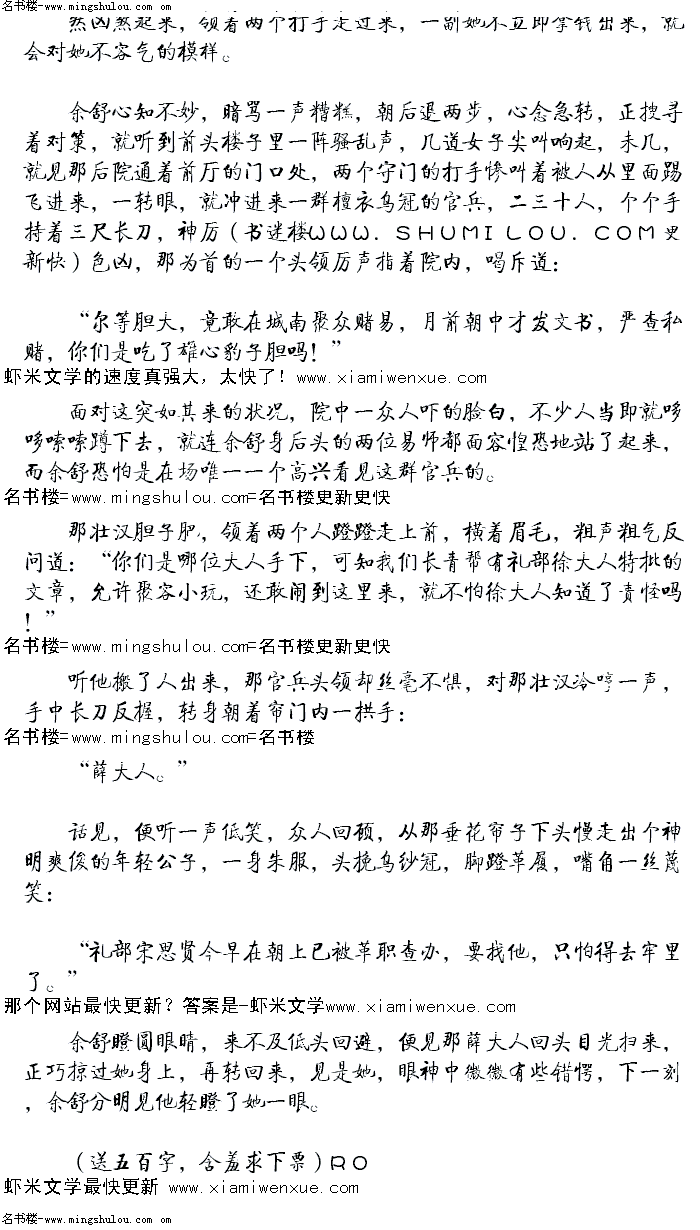 名书楼-www.mingshulou.com om
煞凶煞起来，领着两个打手走过来，一副她不立即拿钱出来，就
会对她不客气的模样。
余舒心知不妙，暗骂一声糟糕，朝后退两步，心念急转，正搜寻
着对策，就听到前头楼子里一阵骚乱声，几道女子尖叫响起，未几，
就见那后院通着前厅的门口处，两个守门的打手惨叫着被人从里面踢
飞进来，一转眼，就冲进来一群檀衣乌冠的官兵，二三十人，个个手
持着三尺长刀，神厉（书迷楼WWW．SHUMILOU．COM更
新快）色凶，那为首的一个头领厉声指着院内，喝斥道：
“尔等胆大，竟敢在城南聚众赌易，月前朝中才发文书，严查私
赌，你们是吃了雄心豹子胆吗！”
虾米文学的速度真强大，太快了！www.xiamiwenxue.com
面对这突如其来的状况，院中一众人吓的脸白，不少人当即就哆
哆嗦嗦蹲下去，就连余舒身后头的两位易师都面容惶恐地站了起来，
而余舒恐怕是在场唯一一个高兴看见这群官兵的。
名书楼=www.mingshulou.com=名书楼更新更快
那壮汉胆子肥，领着两个人蹬蹬走上前，横着眉毛，粗声粗气反
问道：“你们是哪位大人手下，可知我们长青帮有礼部徐大人特批的
文章，允许聚客小玩，还敢闹到这里来，就不怕徐大人知道了责怪吗
！”
名书楼=www.mingshulou.com=名书楼更新更快
听他搬了人出来，那官兵头领却丝毫不惧，对那壮汉冷哼一声，
手中长刀反握，转身朝着帘门内一拱手：
名书楼=www.mingshulou.com=名书楼
“薛大人。”
话见，便听一声低笑，众人回顾，从那垂花帘子下头慢走出个神
明爽俊的年轻公子，一身朱服，头挽乌纱冠，脚蹬革履，嘴角一丝蔑
笑：
“礼部宋思贤今早在朝上已被革职查办，要找他，只怕得去牢里
了。”
那个网站最快更新？答案是-虾米文学www.xiamiwenxue.com
余舒瞪圆眼睛，来不及低头回避，便见那薛大人回头目光扫来，
正巧掠过她身上，再转回来，见是她，眼神中微微有些错愕，下一刻
，余舒分明见他轻瞪了她一眼。
（送五百字，含羞求下票）RO
虾米文学最快更新 www.xiamiwenxue.com
名书楼-www.mingshulou.com om